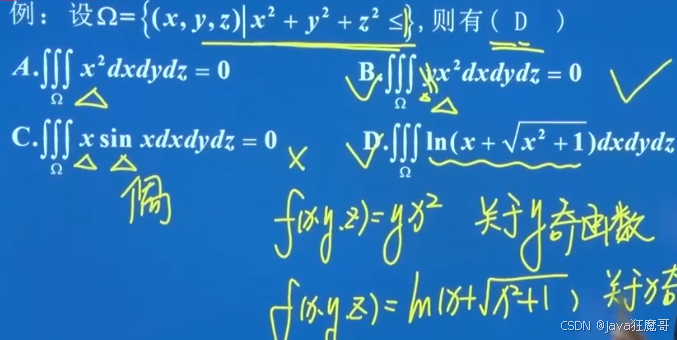 例：设Ω={(x,y,z)|x²+y²+z²≤1},则有( D )
A.∭_Ω x²dxdydz=0 B.∭_Ω yx²dxdydz=0
C.∭_Ω x sin xdxdydz=0 × D.∭_Ω ln(x+√(x²+1))dxdydz
偶
f(x,y,z)=yx² 关于y奇函数
f(x,y,z)=ln(x+√(x²+1)) 关于x奇
CSDN @Java狂魔哥